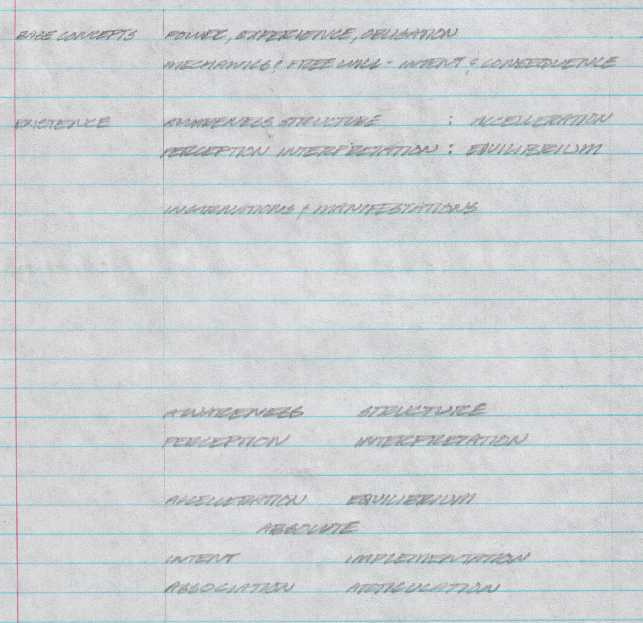 BASE CONCEPTS POWER, EXPERIENCE, OBLIGATION
MECHANICS, FREE WILL - INTENT & CONSEQUENCE
EXISTENCE AWARENESS STRUCTURE : ACCELLERATION
PERCEPTION INTERPRETATION : EQUILIBRIUM
INCARNATIONS / MANIFESTATIONS
AWARENESS STRUCTURE
PERCEPTION INTERPRETATION
ACCELLERATION EQUILIBRIUM
ABSOLUTE
INTENT IMPLEMENTATION
ASSOCIATION ARTICULATION